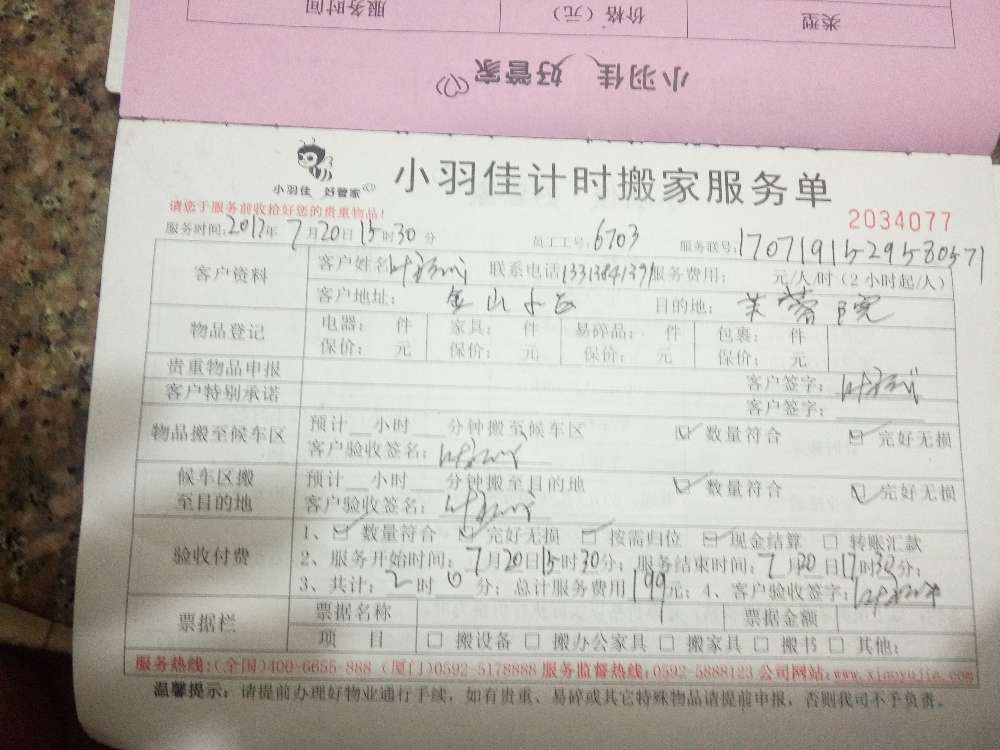 类型 价格（元） 服务时间
小羽佳 好管家
小羽佳 好管家
小羽佳计时搬家服务单
请您于服务前收拾好您的贵重物品!
2034077
服务时间:2017年7月20日15时30分 员工工号:6703 服务联号:17071915295580571
客户资料
客户姓名 联系电话 服务费用: 元/人/时(2小时起/人)
客户地址: 金山小区 目的地: 芙蓉院
物品登记
电器: 件 家具: 件 易碎品: 件 包裹: 件
保价: 元 保价: 元 保价: 元 保价: 元
贵重物品申报 客户签字:
客户特别承诺 客户签字:
物品搬至候车区
预计__小时___分钟搬至候车区 ☑ 数量符合 ☑ 完好无损
客户验收签名:
候车区搬至目的地
预计__小时___分钟搬至目的地 ☑ 数量符合 ☑ 完好无损
客户验收签名:
验收付费
1、☑ 数量符合 ☑ 完好无损 ☑ 按需归位 ☑ 现金结算 □ 转账汇款
2、服务开始时间:7月20日15时30分; 服务结束时间:7月20日17时30分;
3、共计:2时0分; 总计服务费用199元; 4、客户验收签字:
票据栏
票据名称 票据金额
项 目 □ 搬设备 □ 搬办公家具 □ 搬家具 □ 搬书 □ 其他:
服务热线:(全国)400-6655-888 (厦门)0592-5178888 服务监督热线:0592-5888123 公司网站:www.xiaoyujia.com
温馨提示: 请提前办理好物业通行手续, 如有贵重、易碎或其它特殊物品请提前申报, 否则我司不予负责。